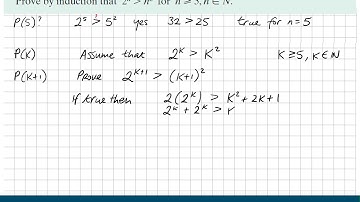 Prove by induction that 2ⁿ > n² for n ≥ 5, n ∈ N.
P(5)? 2⁵ >? 5² yes 32 > 25 true for n=5
P(K) Assume that 2ᴷ > K² K ≥ 5, K ∈ N
P(K+1) Prove 2ᴷ⁺¹ > (K+1)²
If true then 2(2ᴷ) > K² + 2K + 1
2ᴷ + 2ᴷ >